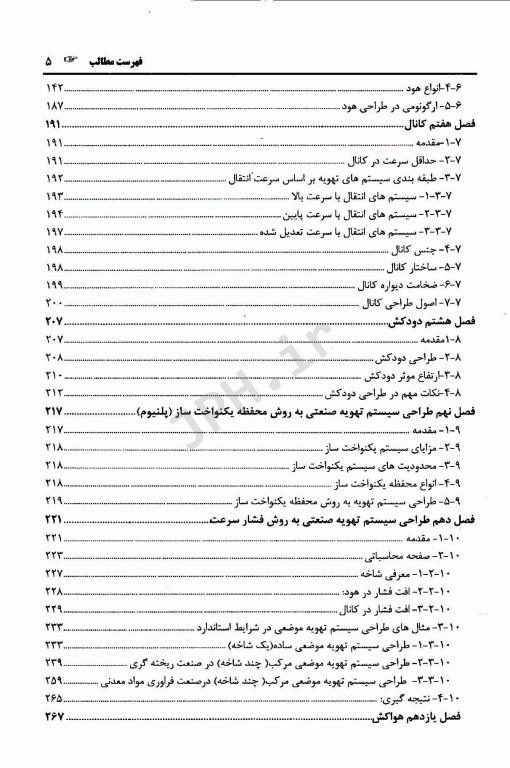 فهرست مطالب ☞ ۵
۶-۴-انواع هود ۱۴۲
۶-۵- ارگونومی در طراحی هود ۱۸۷
فصل هفتم کانال ۱۹۱
۷-۱-مقدمه ۱۹۱
۷-۲- حداقل سرعت در کانال ۱۹۱
۷-۳- طبقه بندی سیستم های تهویه بر اساس سرعت انتقال ۱۹۲
۷-۳-۱- سیستم های انتقال با سرعت بالا ۱۹۳
۷-۳-۲- سیستم های انتقال با سرعت پایین ۱۹۴
۷-۳-۳- سیستم های انتقال با سرعت تعدیل شده ۱۹۷
۷-۴- جنس کانال ۱۹۸
۷-۵- ساختار کانال ۱۹۸
۷-۶- ضخامت دیواره کانال ۱۹۹
۷-۷- اصول طراحی کانال ۲۰۰
فصل هشتم دودکش ۲۰۷
۸-۱مقدمه ۲۰۷
۸-۲- طراحی دودکش ۲۰۸
۸-۳-ارتفاع موثر دودکش ۲۱۰
۸-۴-نکات مهم در طراحی دودکش ۲۱۲
فصل نهم طراحی سیستم تهویه صنعتی به روش محفظه یکنواخت ساز (پلنیوم) ۲۱۷
۹-۱- مقدمه ۲۱۷
۹-۲- مزایای سیستم یکنواخت ساز ۲۱۸
۹-۳- محدودیت های سیستم یکنواخت ساز ۲۱۸
۹-۴- انواع محفظه یکنواخت ساز ۲۱۸
۹-۵- طراحی سیستم تهویه به روش محفظه یکنواخت ساز ۲۱۹
فصل دهم طراحی سیستم تهویه صنعتی به روش فشار سرعت ۲۲۱
۱۰-۱- مقدمه ۲۲۱
۱۰-۲- صفحه محاسباتی ۲۲۳
۱۰-۲-۱- معرفی شاخه ۲۲۷
۱۰-۲-۲- افت فشار در هود: ۲۲۸
۱۰-۲-۳-افت فشار در کانال ۲۲۹
۱۰-۳- مثال های طراحی سیستم تهویه موضعی در شرایط استاندارد ۲۳۳
۱۰-۳-۱- طراحی سیستم تهویه موضعی ساده(یک شاخه) ۲۳۳
۱۰-۳-۲- طراحی سیستم تهویه موضعی مرکب( چند شاخه) در صنعت ریخته گری ۲۳۹
۱۰-۳-۳- طراحی سیستم تهویه موضعی مرکب( چند شاخه) درصنعت فراوری مواد معدنی ۲۵۹
۱۰-۴- نتیجه گیری: ۲۶۵
فصل یازدهم هواکش ۲۶۷
JPH.ir